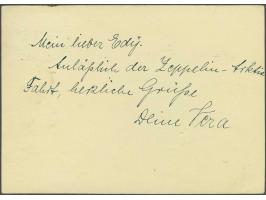 Mein lieber Edy.
Anläßlich der Zeppelin-Arktis
Fahrt, herzliche Grüße
Deine Vera